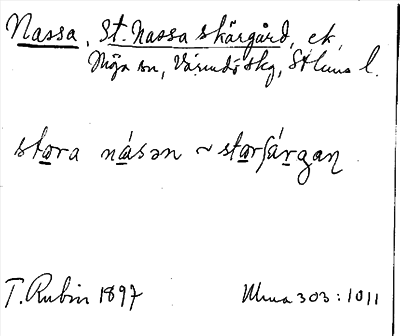 Nassa, St. Nassa skärgård, ek,
Möja sn, Värmdö skg, Sthlms l.
stora násən ~ storʃárgaɳ
T. Rubin 1897
Uma 303:1011